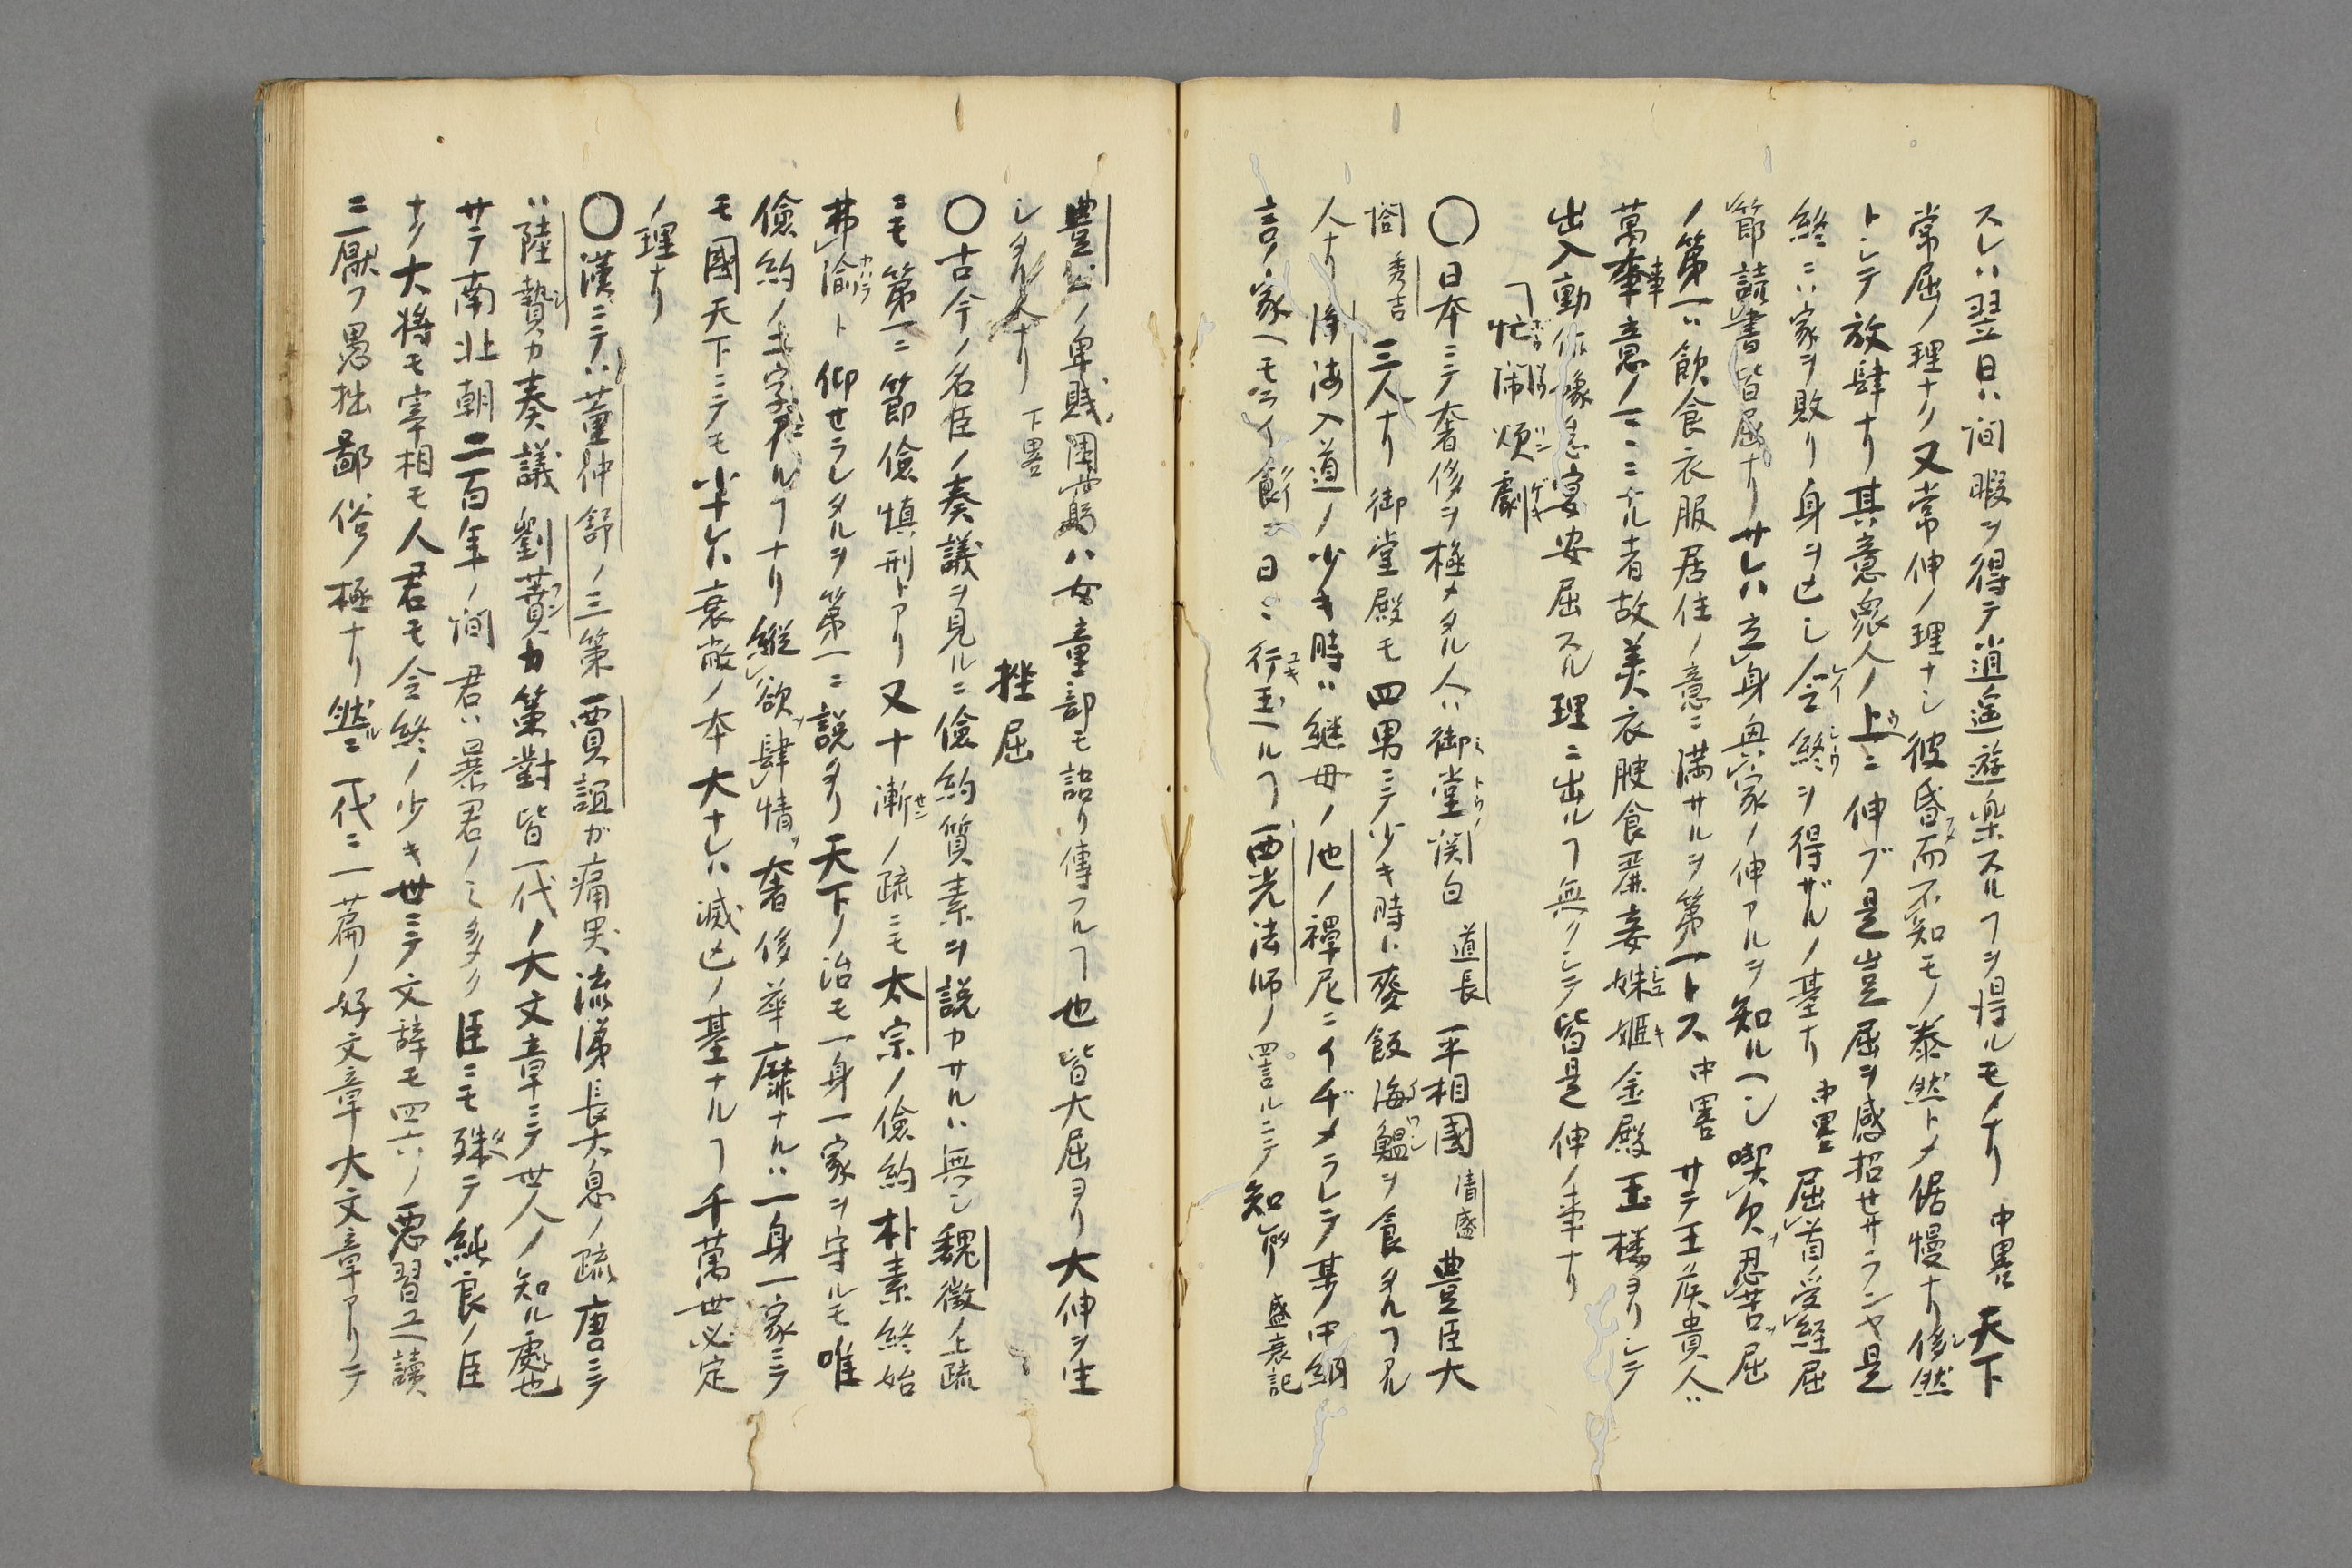 スレハ翌日ハ間暇ヲ得テ逍遥遊楽スルヿヲ得ルモノナリ 中畧 天下
常屈ノ理ナク又常伸ノ理ナシ彼昏而不知モノ泰然トメ倨慢ナリ侈然
トシテ放肆ナリ其意衆人ノ上ニ伸ブ是豈屈ヲ感招セサランヤ是
終ニハ家ヲ敗リ身ヲ亡シ令終ヲ得ザルノ基ナリ 中畧 屈首受経屈
節読書皆屈ナリサレハ立身興家ノ伸アルヲ知ルヘシ喫欠忍苦屈
ノ第一ハ飲食衣服居住ノ意ニ満サルヲ第一トス 中畧 サテ王侯貴人ハ
萬事意ノマヽニナル者故美衣腴食麗妾姝姫金殿玉楼ヨリシテ
出入動作豫怠宴安屈スル理ニ出ルヿ無クシテ皆是伸ノ事ナリ
ヿ忙鬧煩劇
〇日本ニテ奢侈ヲ極メタル人ハ御堂関白 道長 平相國 清盛 豊臣大
閤 秀吉 三人ナリ御堂殿モ四男ニテ少キ時ハ麥飯海鰮ヲ食タルヿアル
人ナリ浄海入道ノ少キ時ハ継母ノ池ノ禪尼ニイヂメラレテ某ノ中納
言ノ家ヘモライ飡ニ日ニ行玉ヘルヿ西光法師ノ詈ルニテ知ヘシ 盛衰記
豊公ノ卑賤困窮ハ女童部モ語リ傳フルヿ也皆大屈ヨリ大伸ヲ生
シタル人ナリ 下畧
挫屈
〇古今ノ名臣ノ奏議ヲ見ルニ儉約質素ヲ説カサルハ無シ魏徴ノ上疏
ニモ第一ニ節儉慎刑トアリ又十漸ノ疏ニモ太宗ノ儉約朴素終始
弗渝ト仰セラレタルヲ第一ニ説タリ天下ノ治モ一身一家ヲ守ルモ唯
儉約ノ二字ニアルヿナリ縦欲肆情奢侈華靡ナルハ一身一家ニテ
モ國天下ニテモ小ナレハ衰微ノ本大ナレハ滅亡ノ基ナルヿ千萬世必定
ノ理ナリ
〇漢ニテハ董仲舒ノ三策賈誼ガ痛哭流涕長大息ノ疏唐ニテ
ハ陸贄カ奏議劉蕡カ策對皆一代ノ大文章ニテ世人ノ知ル處也
サテ南北朝二百年ノ間君ハ暴君ノミ多ク臣ニモ殊テ純良ノ臣
ナク大将モ宰相モ人君モ令終ノ少キ世ニテ文辞モ四六ノ悪習ユヘ讀
ニ厭フ愚拙鄙俗ノ極ナリ然ルニ一代ニ一篇ノ好文章大文章アリテ